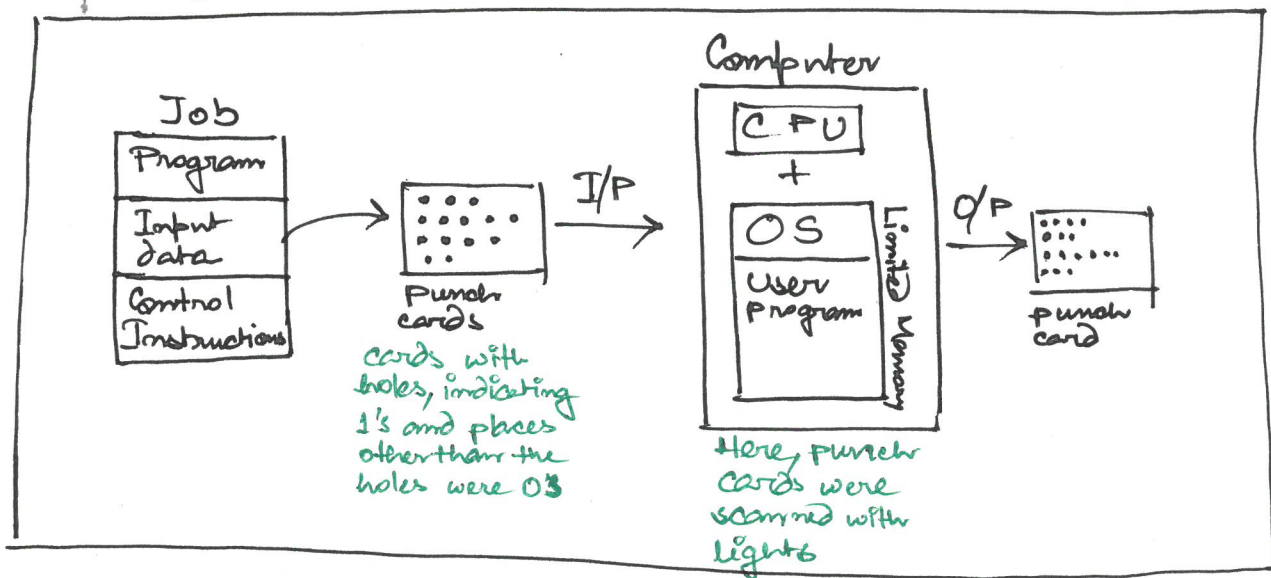 Job
Program
Input
data
Control
Instructions
punch
cards
cards with
holes, indicating
1's and places
other than the
holes were 0's
I/P
Computer
CPU
+
OS
User
program
Limited Memory
Here, punch
cards were
scanned with
lights
O/P
punch
card